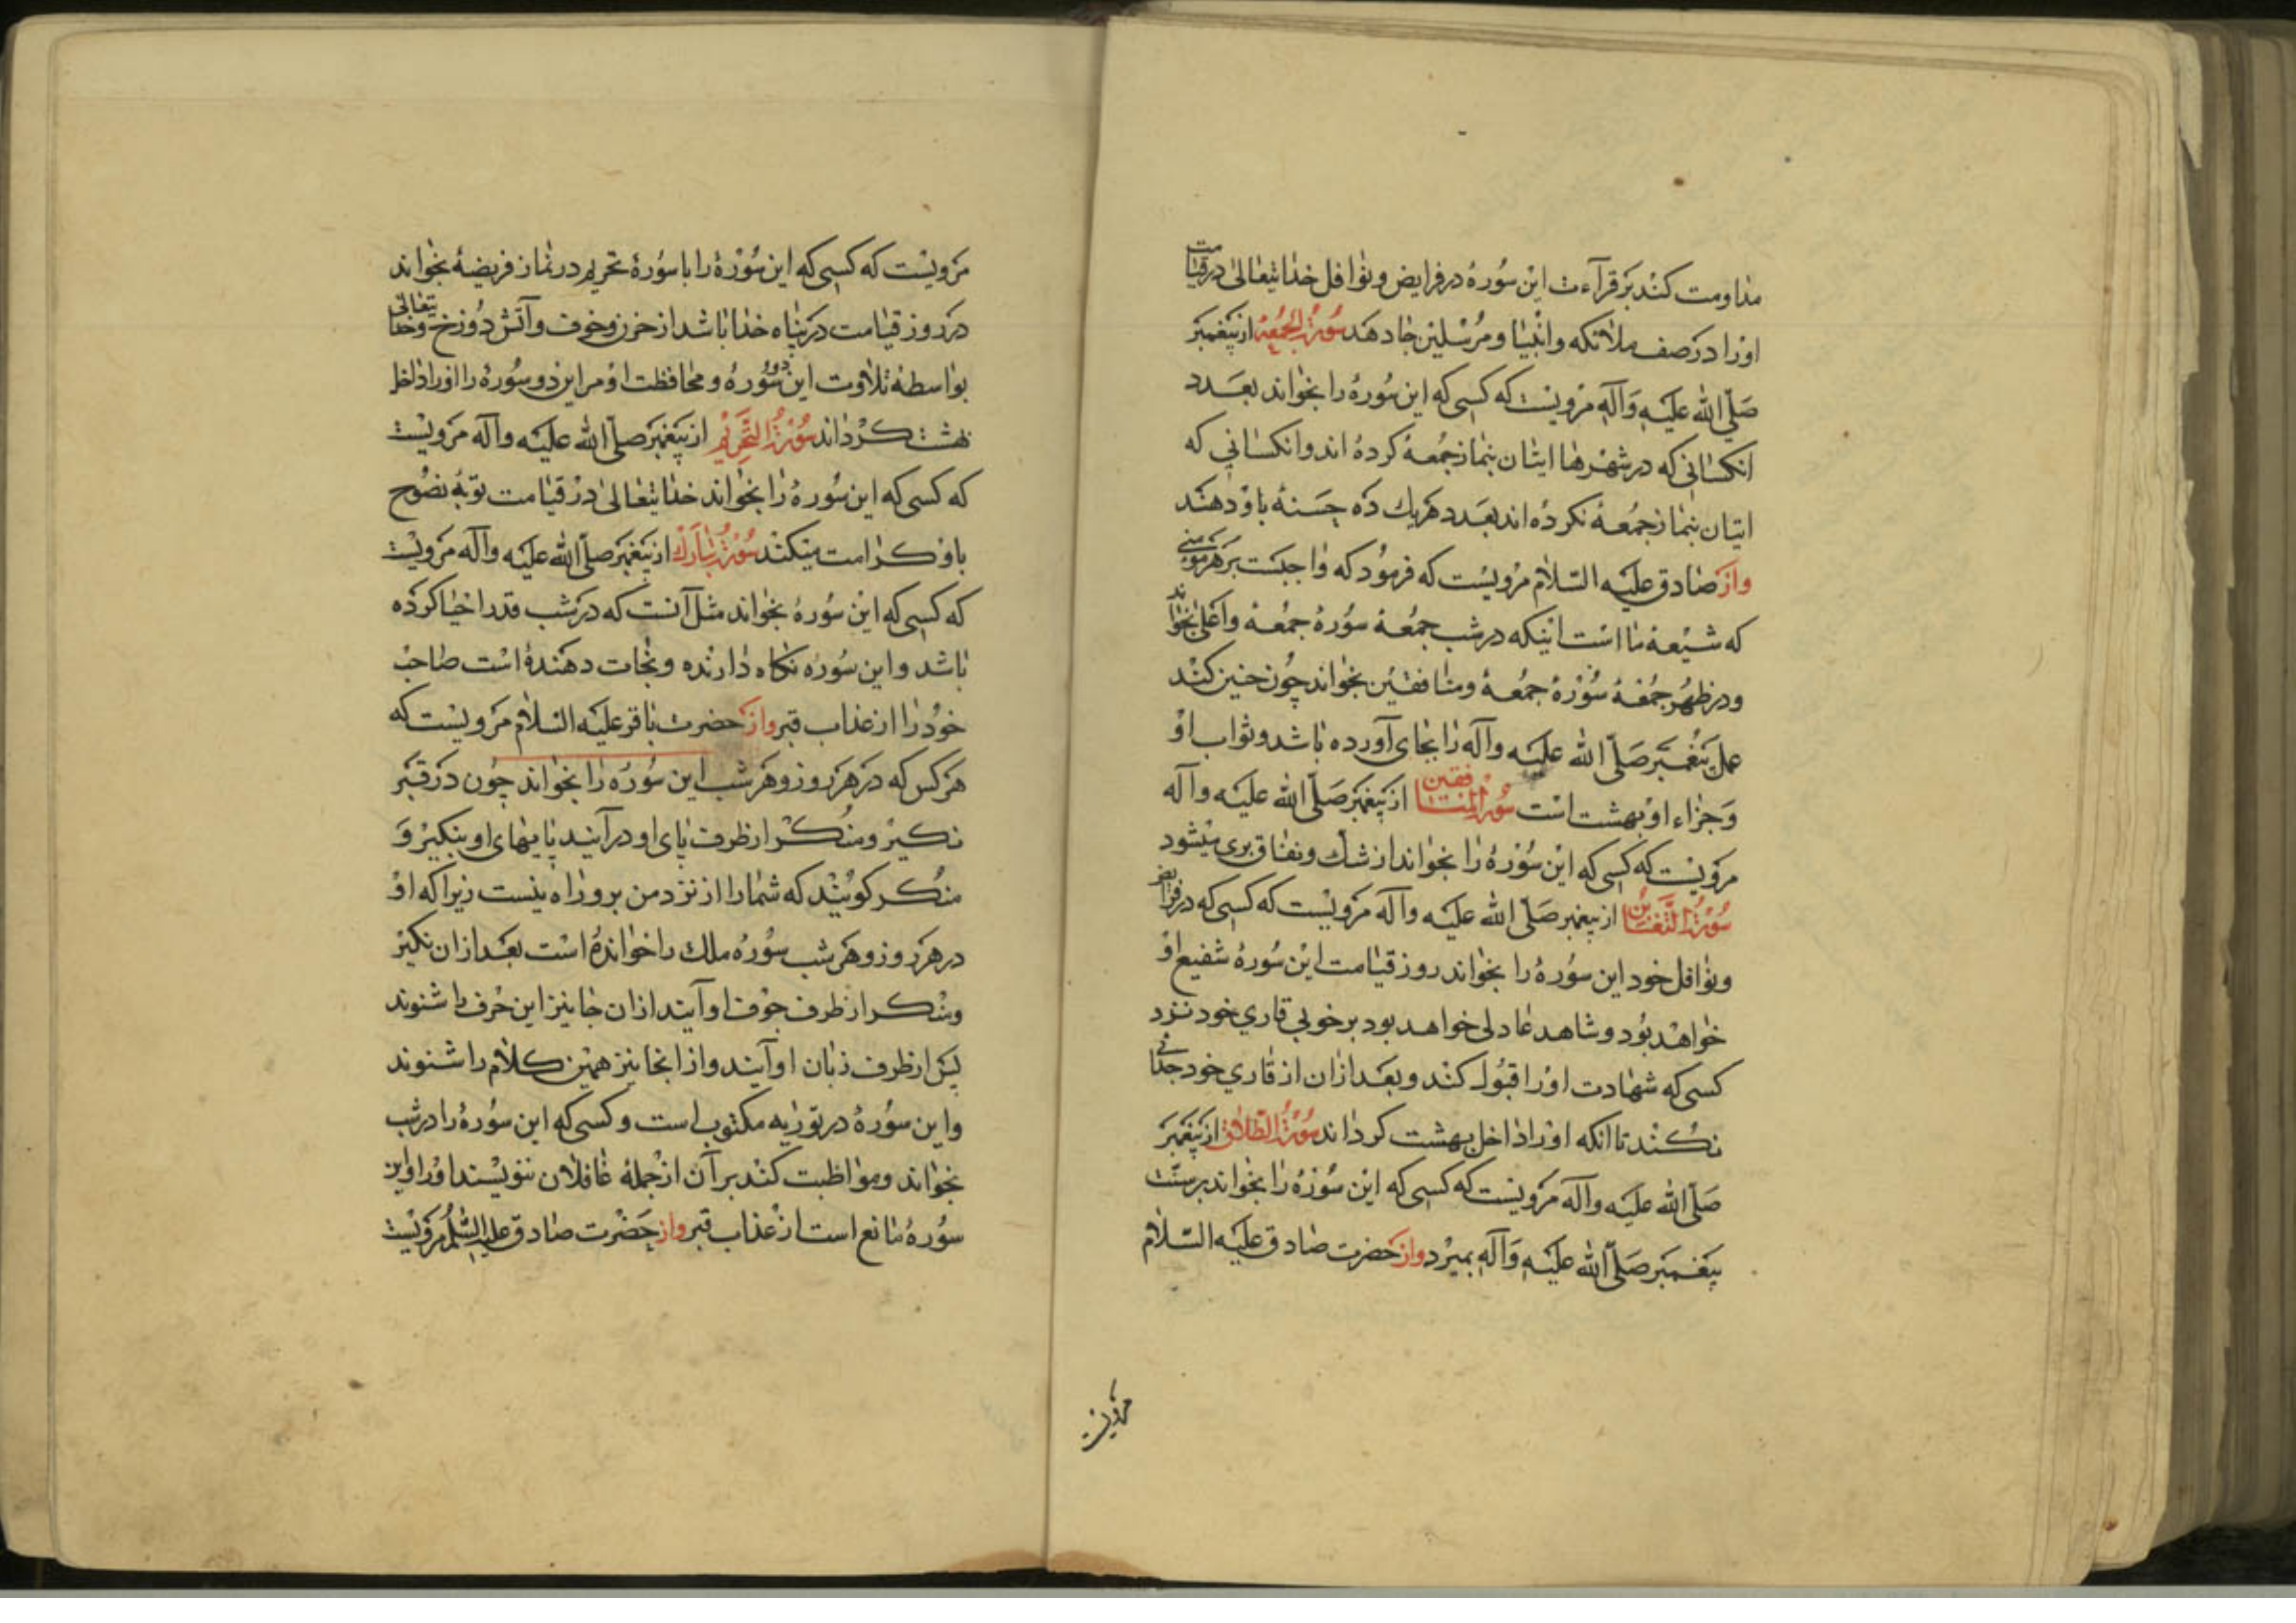 مداومت کند بر قرآءت این سُوره در فرایض و نوافل خدایتعالی در قیامت
اورا در صف ملائکه و انبیا و مُرسلین جا دهد سُورةُ الجُمُعة از پیغمبر
صَلّی الله علیه وَآلهِ مرویست که کسی که این سُورهٔ را بخواند بعدد
انکسانی که در شهرها ایتان بنماز جُمعهٔ کرده اند و انکسانی که
اتیان بنماز جمُعهٔ نکرده اند بعدد هریك ده حسَنهٔ باو دهند
واز صادق علیه السّلام مرویست که فرمُود که واجبست بر هر مؤمنی
که شیعهٔ ما است اینکه در شب جمُعهٔ سُورهٔ جمُعهٔ و اعلی بخواند
و در ظهُر جمُعهٔ سُورهٔ جمُعهٔ و منافقین بخواند چُون چنین کند
عمل پیغمبر صَلّی الله علیه وآله را بجای آورده باشد و ثواب او
وَجزاء او بهشت است سُورة المنافقین از پیغمبر صَلّی الله علیه وآله
مرویست که کسی که این سُورهٔ را بخواند از شك و نفاق بری میشود
سُورة التّغابُن از پیغمبر صَلّی الله علیه وآله مرویست که کسی که در فرایض
و نوافل خود این سُورهٔ را بخواند روز قیامت این سُورهٔ شفیع او
خواهد بُود و شاهد عادلی خواهد بود بر خوبی قاری خود نزد
کسی که شهادت اورا قبُول کند و بعد ازان از قاری خود جدائی
نکُند تا انکه اورا داخل بهشت کرداند سُورةُ الطّلاق از پیغمبر
صَلّی الله علیه وآله مرویست که کسی که این سُورهٔ را بخواند بر سنّت
پیغمبر صَلّی الله علیه وَآلهِ بمیرد واز حضرت صادق علیه السّلام
مرویست
مرویست که کسی که این سُورهٔ را با سُورهٔ تحریم در نماز فریضهٔ بخواند
در روز قیامت در پناه خدا باشد از حزن و خوف و آتش دُوزخ و خدایتعالی
بواسطهٔ تلاوت این دو سُورهٔ و محافظت او مر این دو سُورهٔ را اورا داخل
بهشت کرداند سُورة التّحریم از پیغمبر صلّی الله علیه وآله مرویست
که کسی که این سُورهٔ را بخواند خدایتعالی در قیامت توبهٔ نصُوح
باو کرامت میکند سُورةُ تبارَك از پیغمبر صلّی الله علیه وآله مرویست
که کسی که این سُورهٔ بخواند مثل آنست که در شب قدر احیا کرده
باشد و این سُوره نکاه دارنده و نجات دهندهٔ است صاحب
خود را از عذاب قبر واز حضرت باقر علیه السّلام مرویست که
هر کس که در هر روز و هر شب این سُورهٔ را بخواند چون در قبر
نکیر و منُکر از طرف پای او درآیند پایهای او بنکیر وَ
منُکر کویند که شمارا از نزد من برو راه نیست زیرا که او
در هر روز و هر شب سُورهٔ ملك را خوانده است بعد ازان نکیر
و منکر از طرف جوف او آیند ازان جا نیز این حرف را شنوند
پس از طرف زبان او آیند و از انجا نیز همین کلام را شنوند
واین سُورهٔ در توریه مکتوب است و کسی که این سُورهٔ را در شب
بخواند و مواظبت کند بر آن از جملهٔ غافلان ننویسند اورا و این
سُورهٔ مانع است از عذاب قبر واز حضرت صادق علیه السّلم مرویست